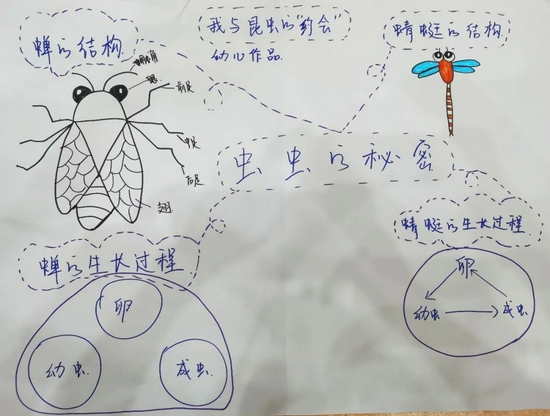 蝉的结构
我与昆虫的"约会"
幼儿作品
蜻蜓的结构
触角
眼
前足
中足
后足
翅
虫虫的秘密
蝉的生长过程
卵
幼虫
成虫
蜻蜓的生长过程
卵
幼虫
成虫